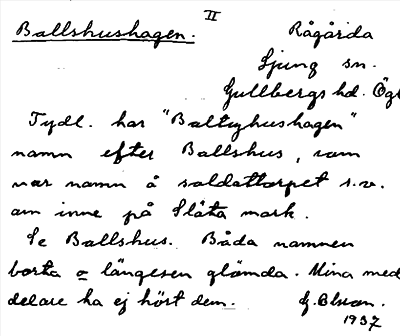 II
Ballshushagen. Rågårda
Ljung sn.
Gullbergs hd. Ögl
Tydl. har "Baltzhushagen"
namn efter Ballshus, som
var namn å soldattorpet s.v.
om inne på Släta mark.
Se Ballshus. Båda namnen
borta o längesen glömda. Mina med
delare ha ej hört dem. G. Olsson.
1937